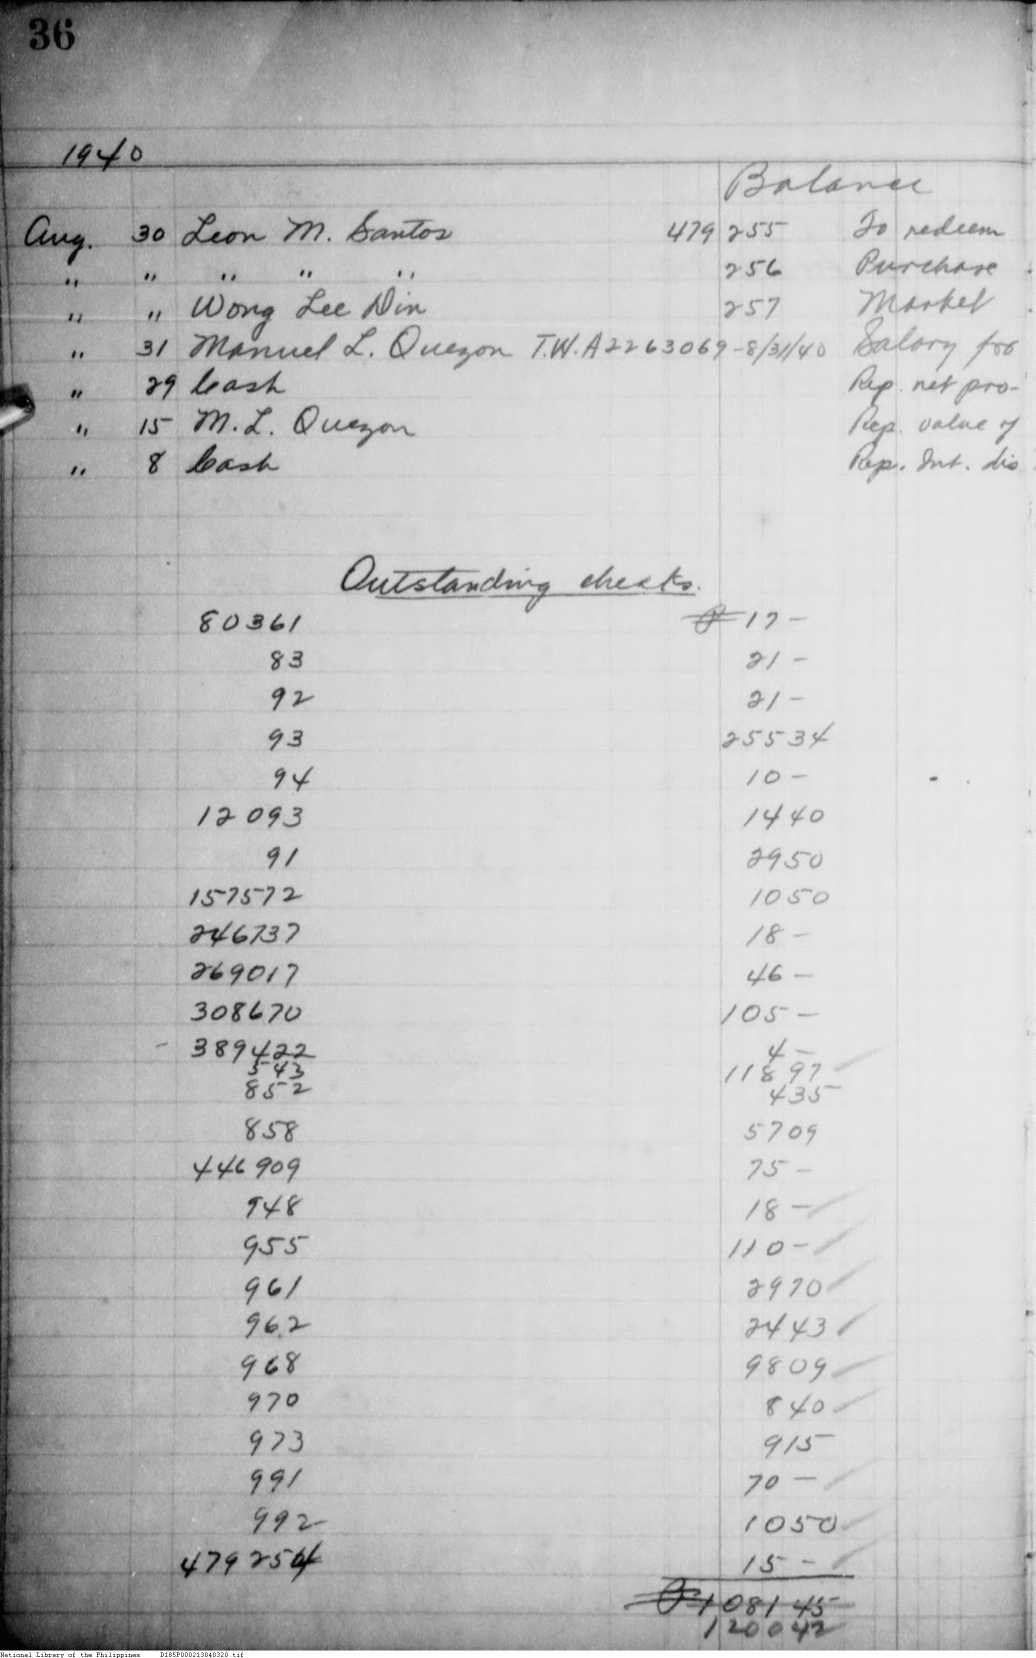 36
1940
Balance
Aug. 30 Leon M. Santos 479 255 To redeem
" " " " " 256 Purchase
" " Wong Lee Din 257 Market
" 31 Manuel L. Quezon T.W.A2263069-8/31/40 Salary for
" 29 Cash Rep. net pro-
" 15 M. L. Quezon Rep. value of
" 8 Cash Rep. Int. dis
Outstanding checks.
80361 ₱ 17 -
83 21 -
92 21 -
93 25534
94 10 -
12093 1440
91 2950
157572 1050
246737 18 -
269017 46 -
308670 105 -
- 389422 4 -
543 11897
852 435
858 5709
446909 75 -
948 18 -
955 110 -
961 2970
962 2443
968 9809
970 840
973 915
991 70 -
992 1050
479254 15 -
₱108145
120042
National Library of the Philippines D185P000213040320.tif